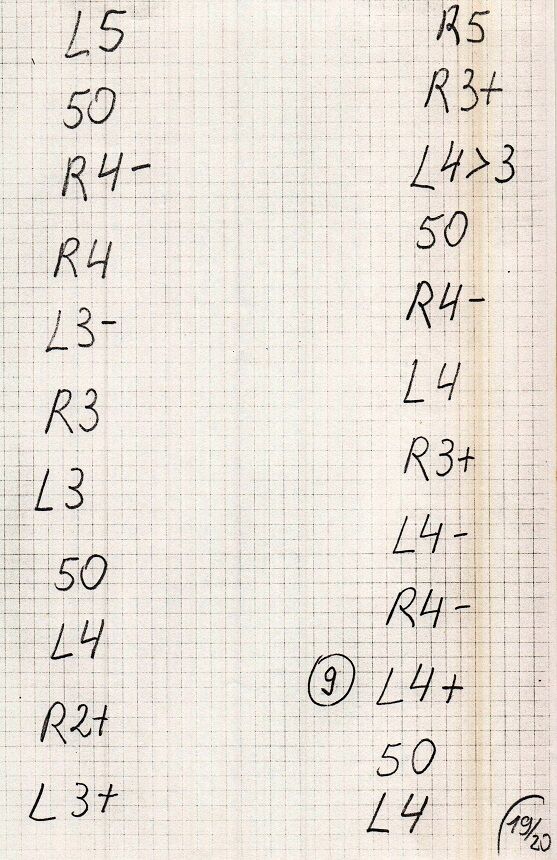 L5
50
R4-
R4
L3-
R3
L3
50
L4
R2+
L3+
R5
R3+
L4>3
50
R4-
L4
R3+
L4-
R4-
9 L4+
50
L4
19/20